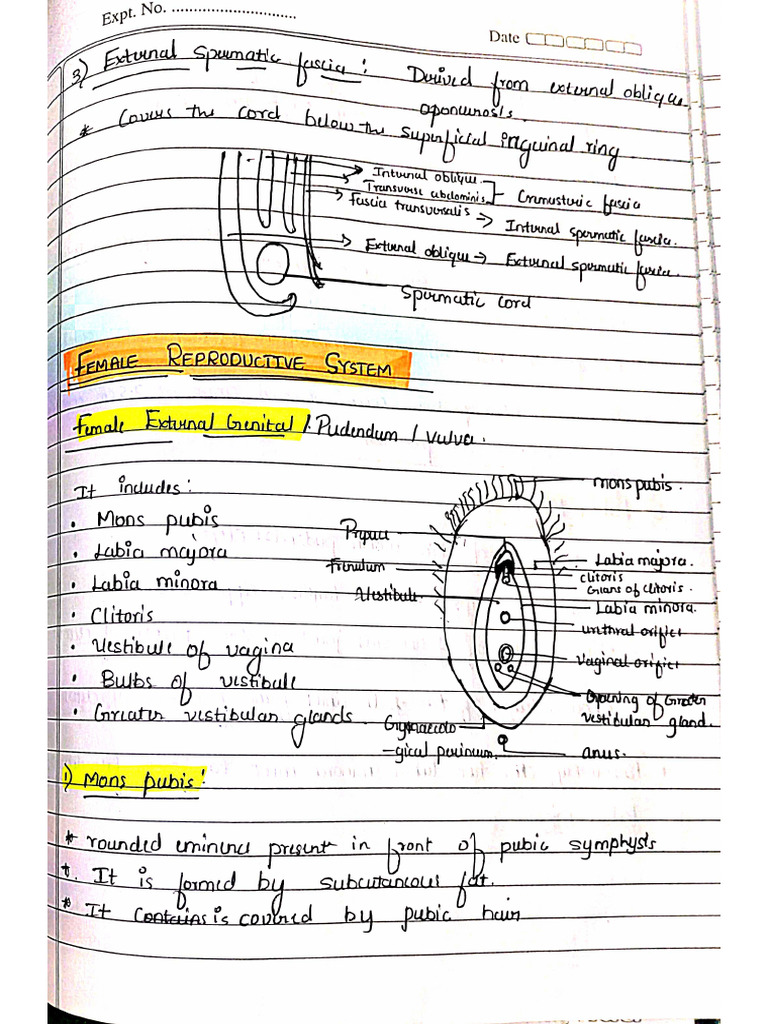 Expt. No. ..............................
Date
3) External Spermatic fascia: Derived from external oblique
aponeurosis.
* Covers the cord below the superficial inguinal ring
Internal oblique
Transverse abdominis
Cremasteric fascia
fascia transversalis → Internal spermatic fascia.
External oblique → External spermatic fascia.
Spermatic cord
FEMALE REPRODUCTIVE SYSTEM
Female External Genital / Pudendum / vulva.
It includes:
• Mons pubis
• Labia majora
• Labia minora
• Clitoris
• Vestibule of vagina
• Bulbs of vestibule
• Greater vestibular glands
mons pubis.
Prepuce
Frenulum
Vestibule
Labia majora.
clitoris
Glans of clitoris.
Labia minora.
urethral orifice
vaginal orifice
Opening of Greater
vestibular gland.
Gynaecolo
-gical perineum.
anus.
1) Mons pubis:
* rounded eminence present in front of pubic symphysis
* It is formed by subcutaneous fat.
* It contains is covered by pubic hair